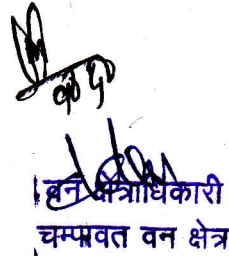 वन क्षेत्राधिकारी
चम्पावत वन क्षेत्र